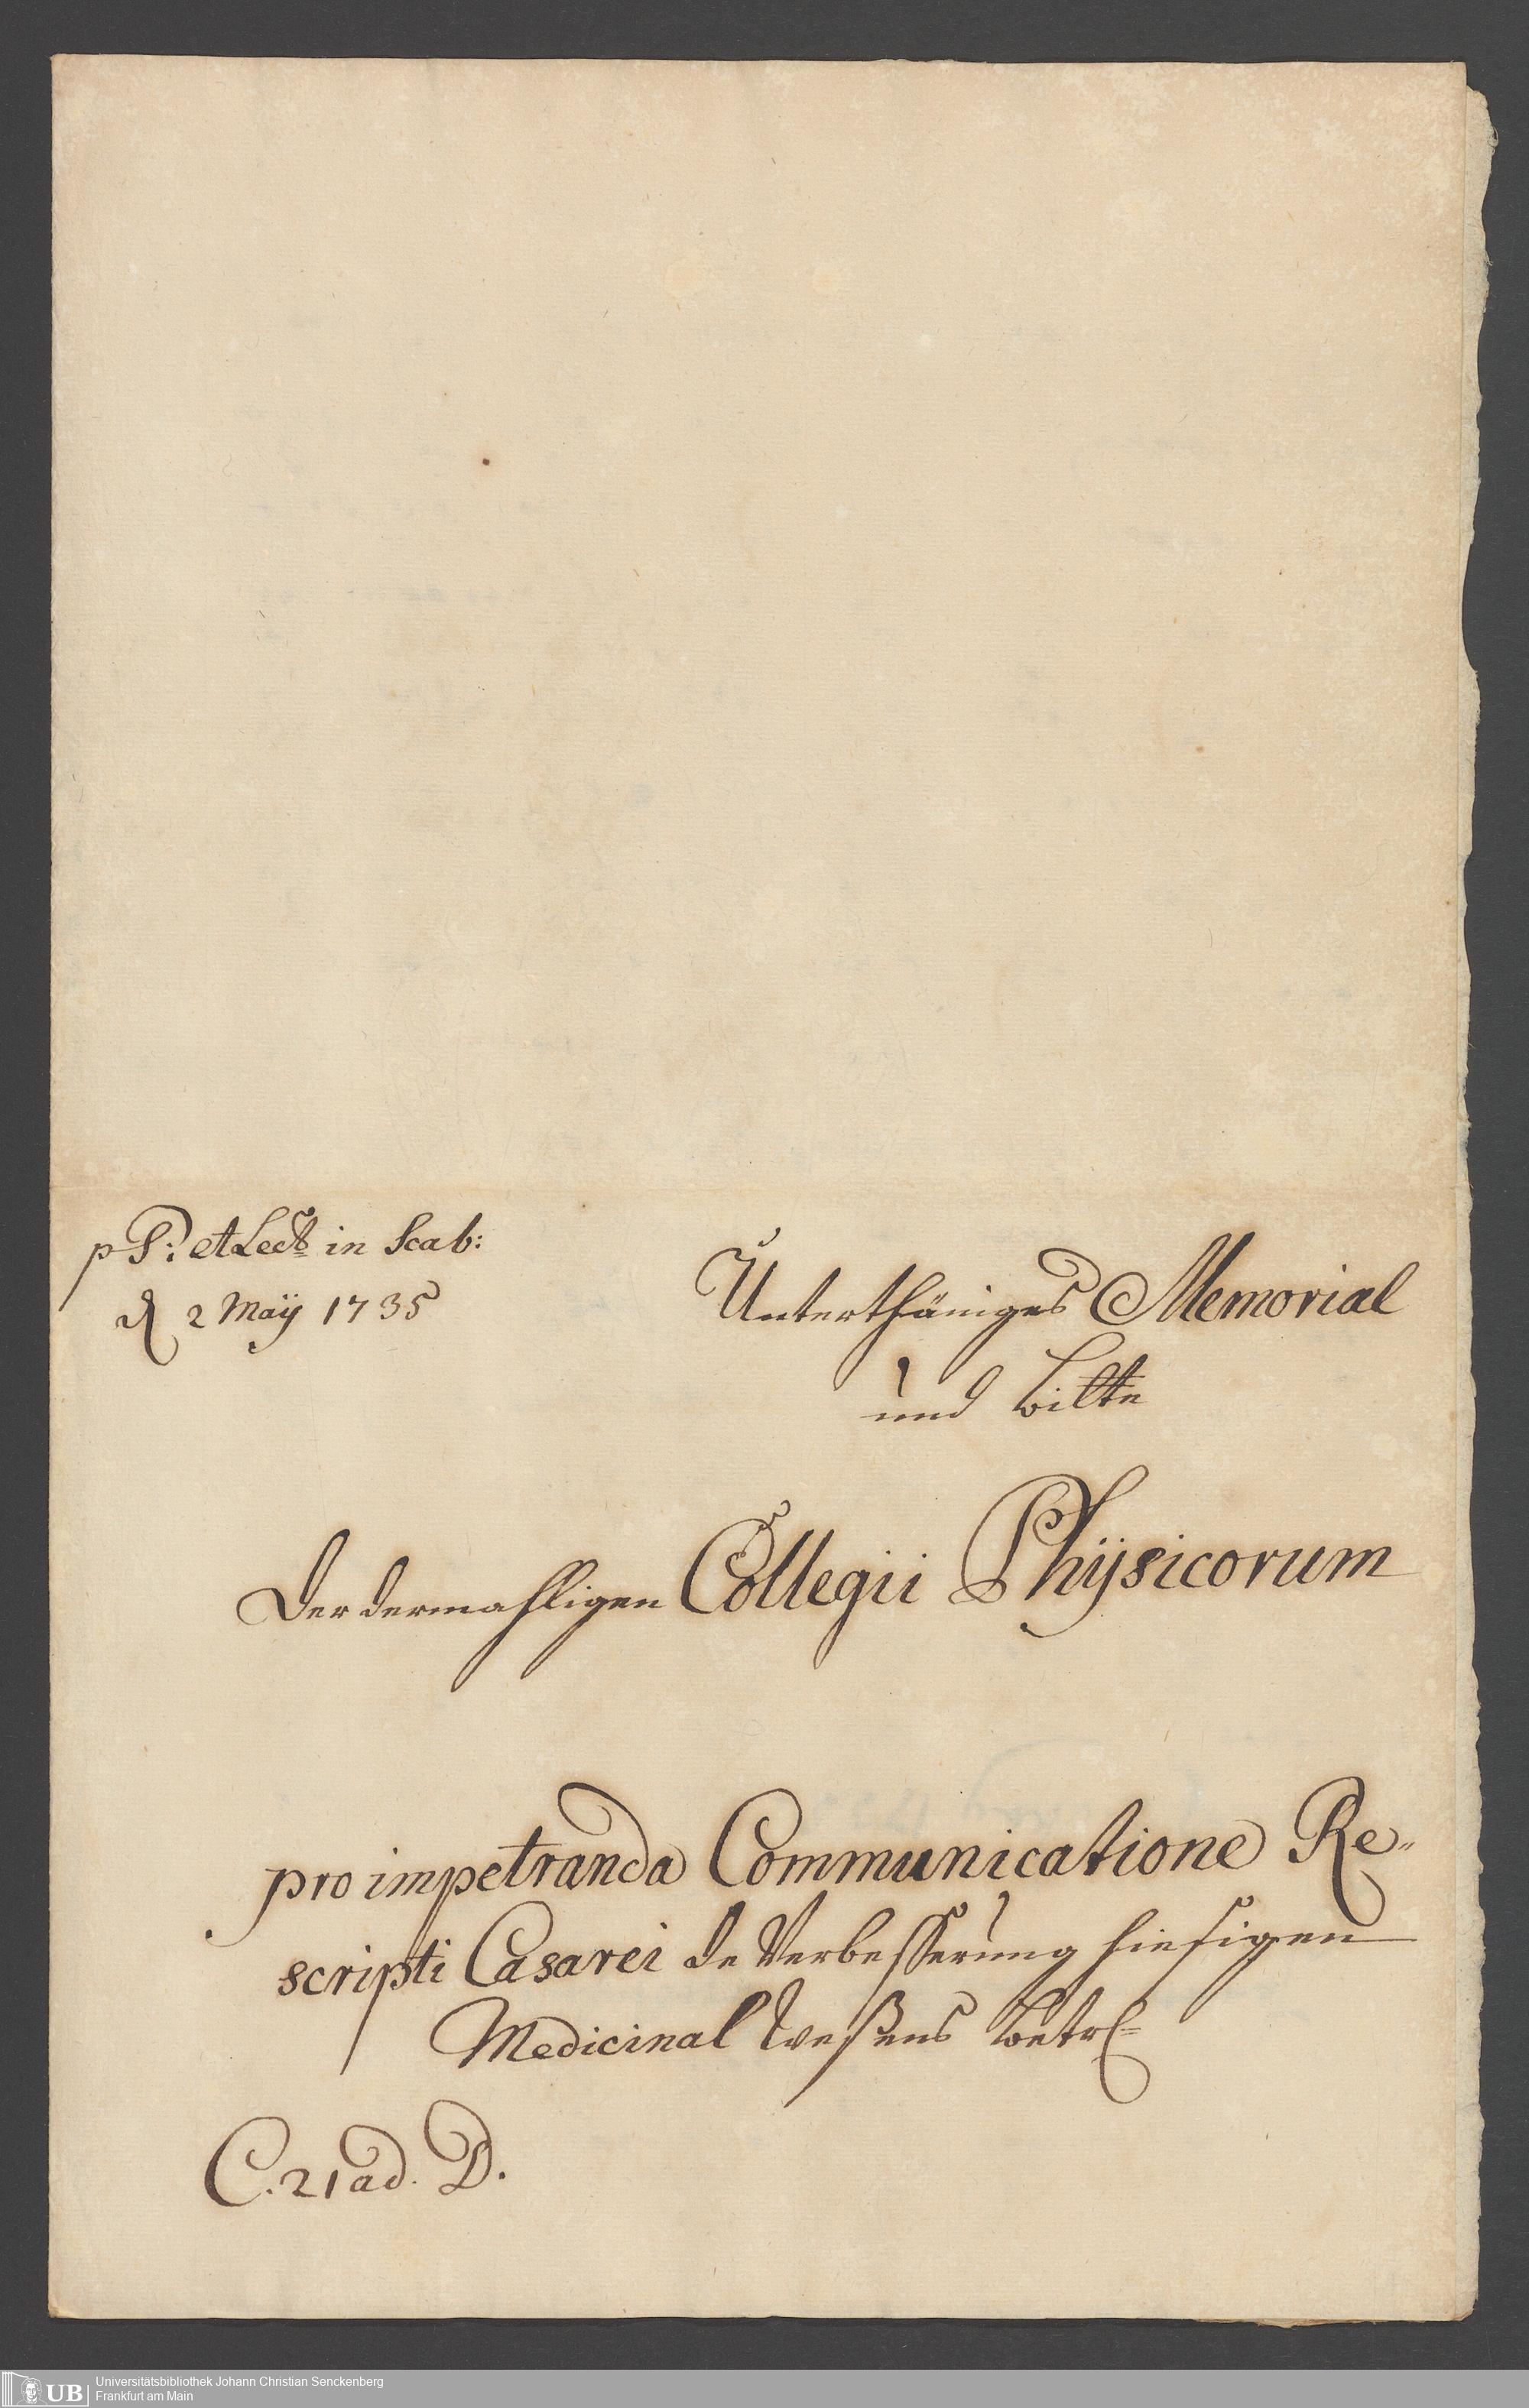 pS: et Lect in Scab:
d 2 Maÿ 1735
Unterthäniges Memorial
und Bitte
Der dermahligen Collegii Phÿsicorum
pro impetranda Communicatione Re„
scripti Casarei de Verbesserung hiesigen
Medicinal Weßens betr
C. 21 ad. D.
UB
Universitätsbibliothek Johann Christian Senckenberg
Frankfurt am Main